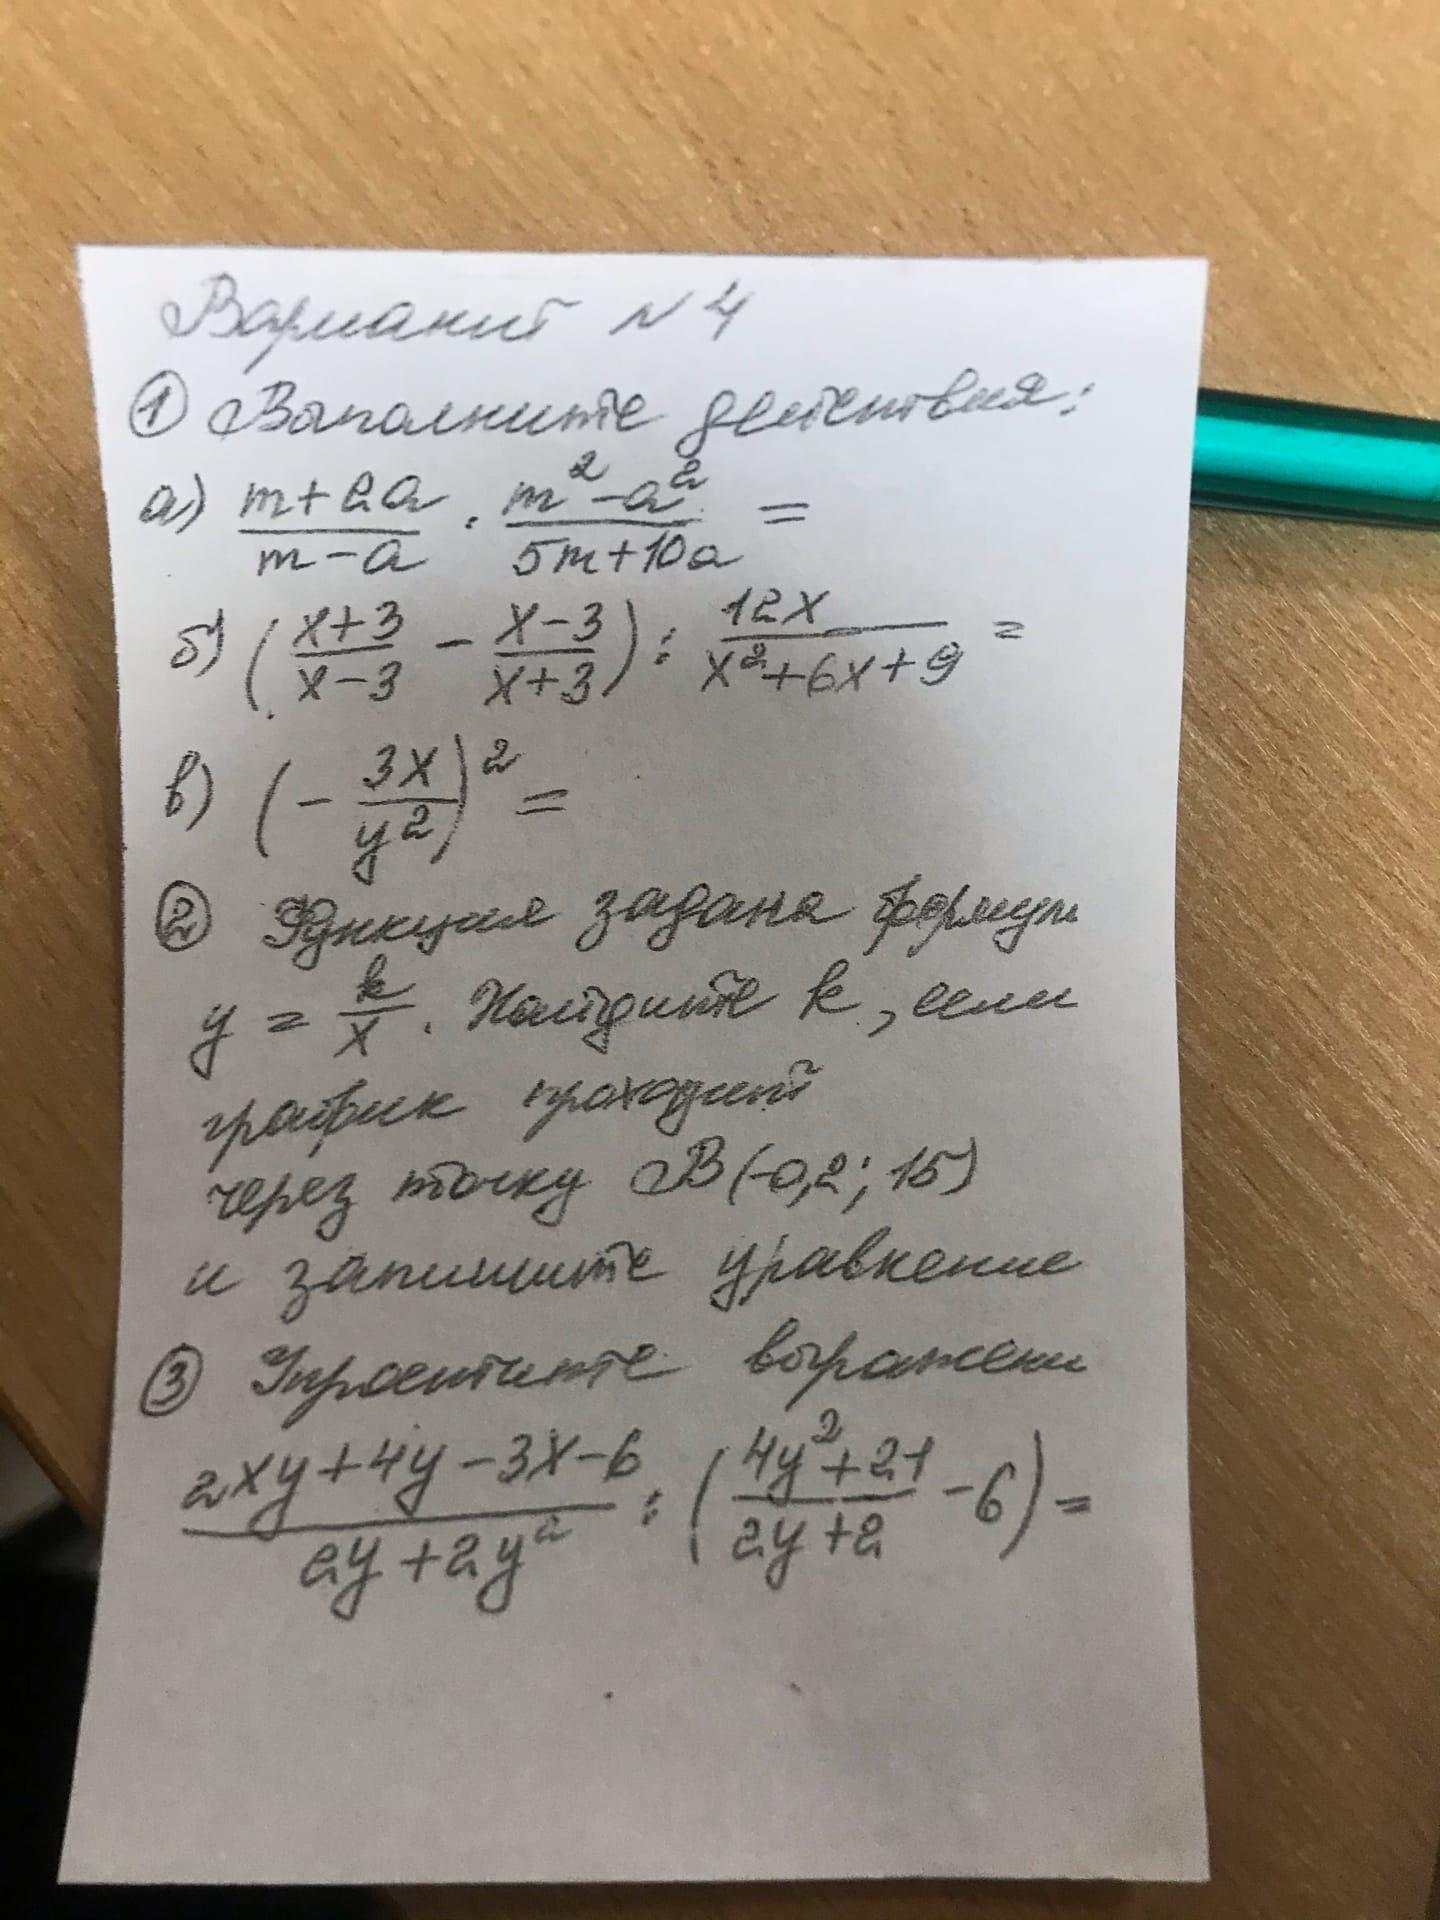 Вариант №4
① Выполните действия:
а) \frac{m+2a}{m-a} · \frac{m^2-a^2}{5m+10a} =
б) (\frac{x+3}{x-3} - \frac{x-3}{x+3}) : \frac{12x}{x^2+6x+9} =
в) (-\frac{3x}{y^2})^2 =
② Функция задана формул
y = \frac{k}{x}. Найдите k, если
график проходит
через точку B(-0,2; 15)
и запишите уравнение
③ Упростите выражени
\frac{2xy+4y-3x-6}{2y+2y^2} : (\frac{4y^2+21}{2y+2} - 6) =